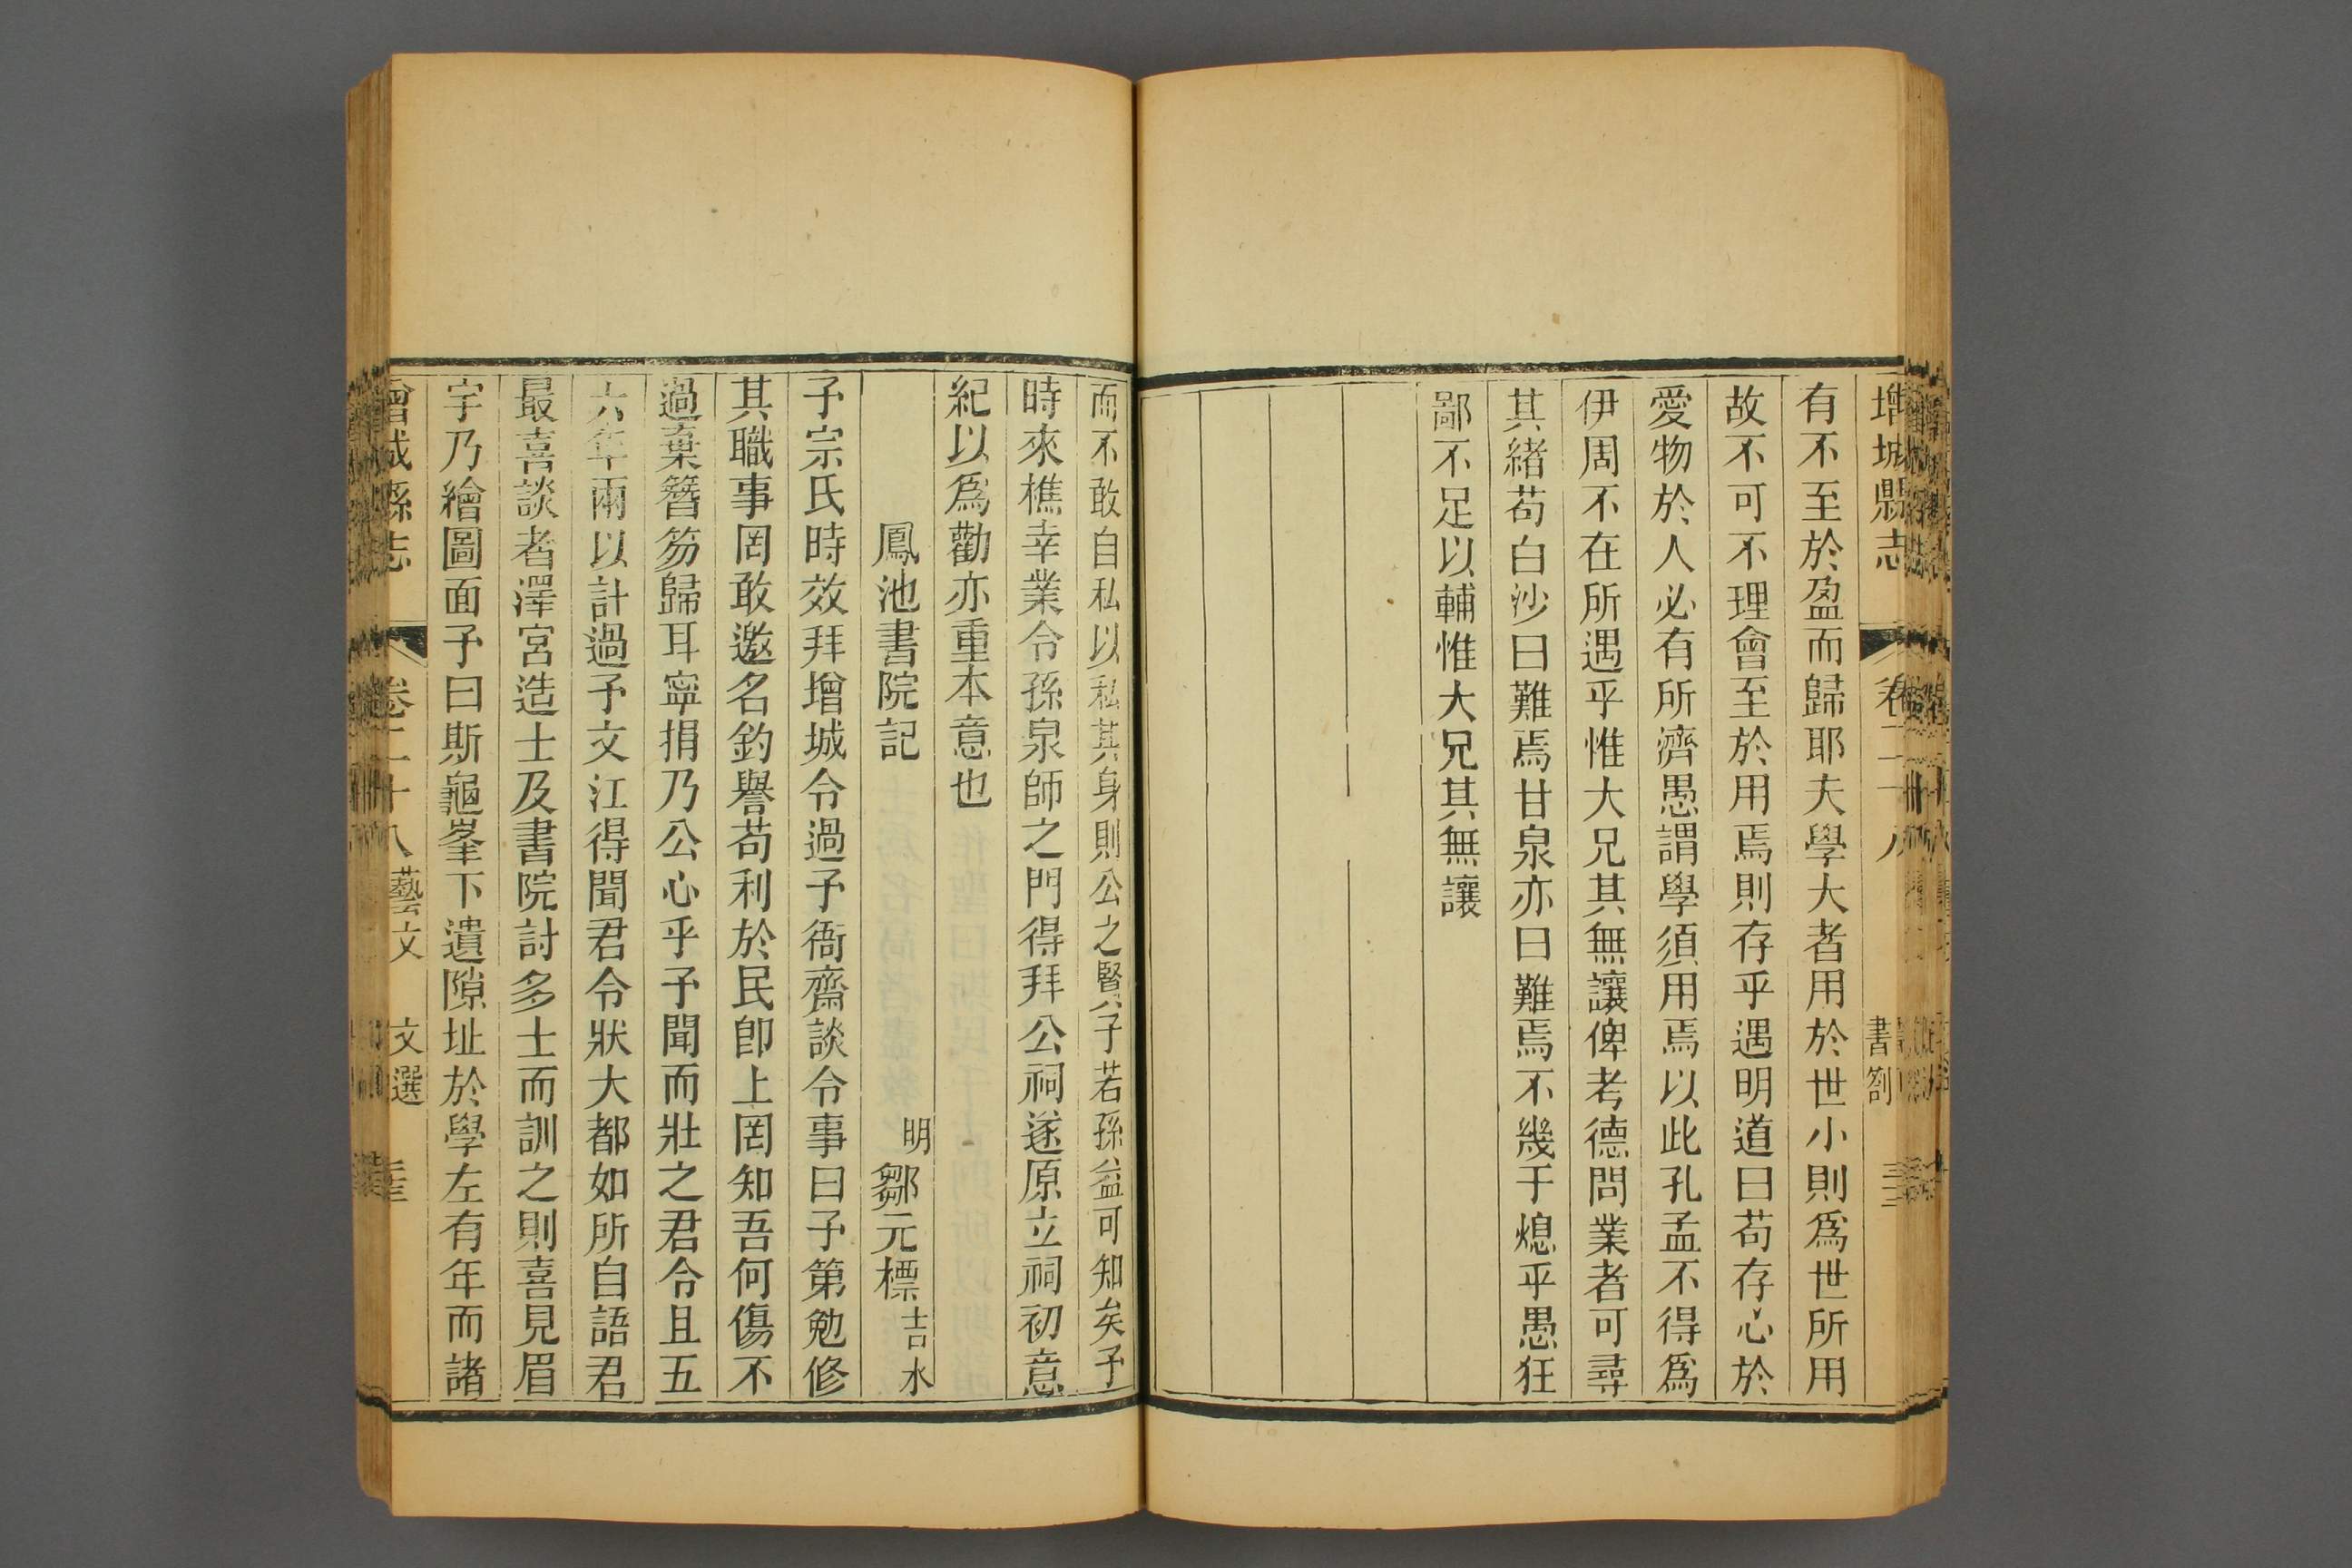 增城縣志
卷二十八
書劄
三三
有不至於盈而歸耶夫學大者用於世小則爲世所用
故不可不理會至於用焉則存乎遇明道曰苟存心於
愛物於人必有所濟愚謂學須用焉以此孔孟不得爲
伊周不在所遇乎惟大兄其無讓俾考德問業者可尋
其緒苟白沙曰難焉甘泉亦曰難焉不幾于熄乎愚狂
鄙不足以輔惟大兄其無讓
而不敢自私以私其身則公之賢子若孫益可知矣予
時來樵幸業令孫泉師之門得拜公祠遂原立祠初意
紀以爲勸亦重本意也
鳳池書院記 明 鄒元標 吉水
予宗氏時效拜增城令過予衙齋談令事曰予第勉修
其職事罔敢邀名釣譽苟利於民卽上罔知吾何傷不
過棄簪笏歸耳寧捐乃公心乎予聞而壯之君令且五
六年兩以計過予文江得聞君令狀大都如所自語君
最喜談者澤宮造士及書院討多士而訓之則喜見眉
宇乃繪圖面予曰斯龜峯下遺隙址於學左有年而諸
曾成縣志
卷二十八 藝文 文選